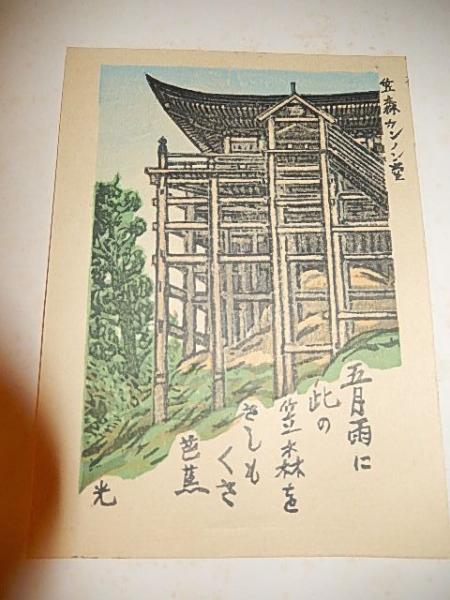 笠森カンノン堂
五月雨に
此の
笠森を
さしも
くさ
芭蕉
光